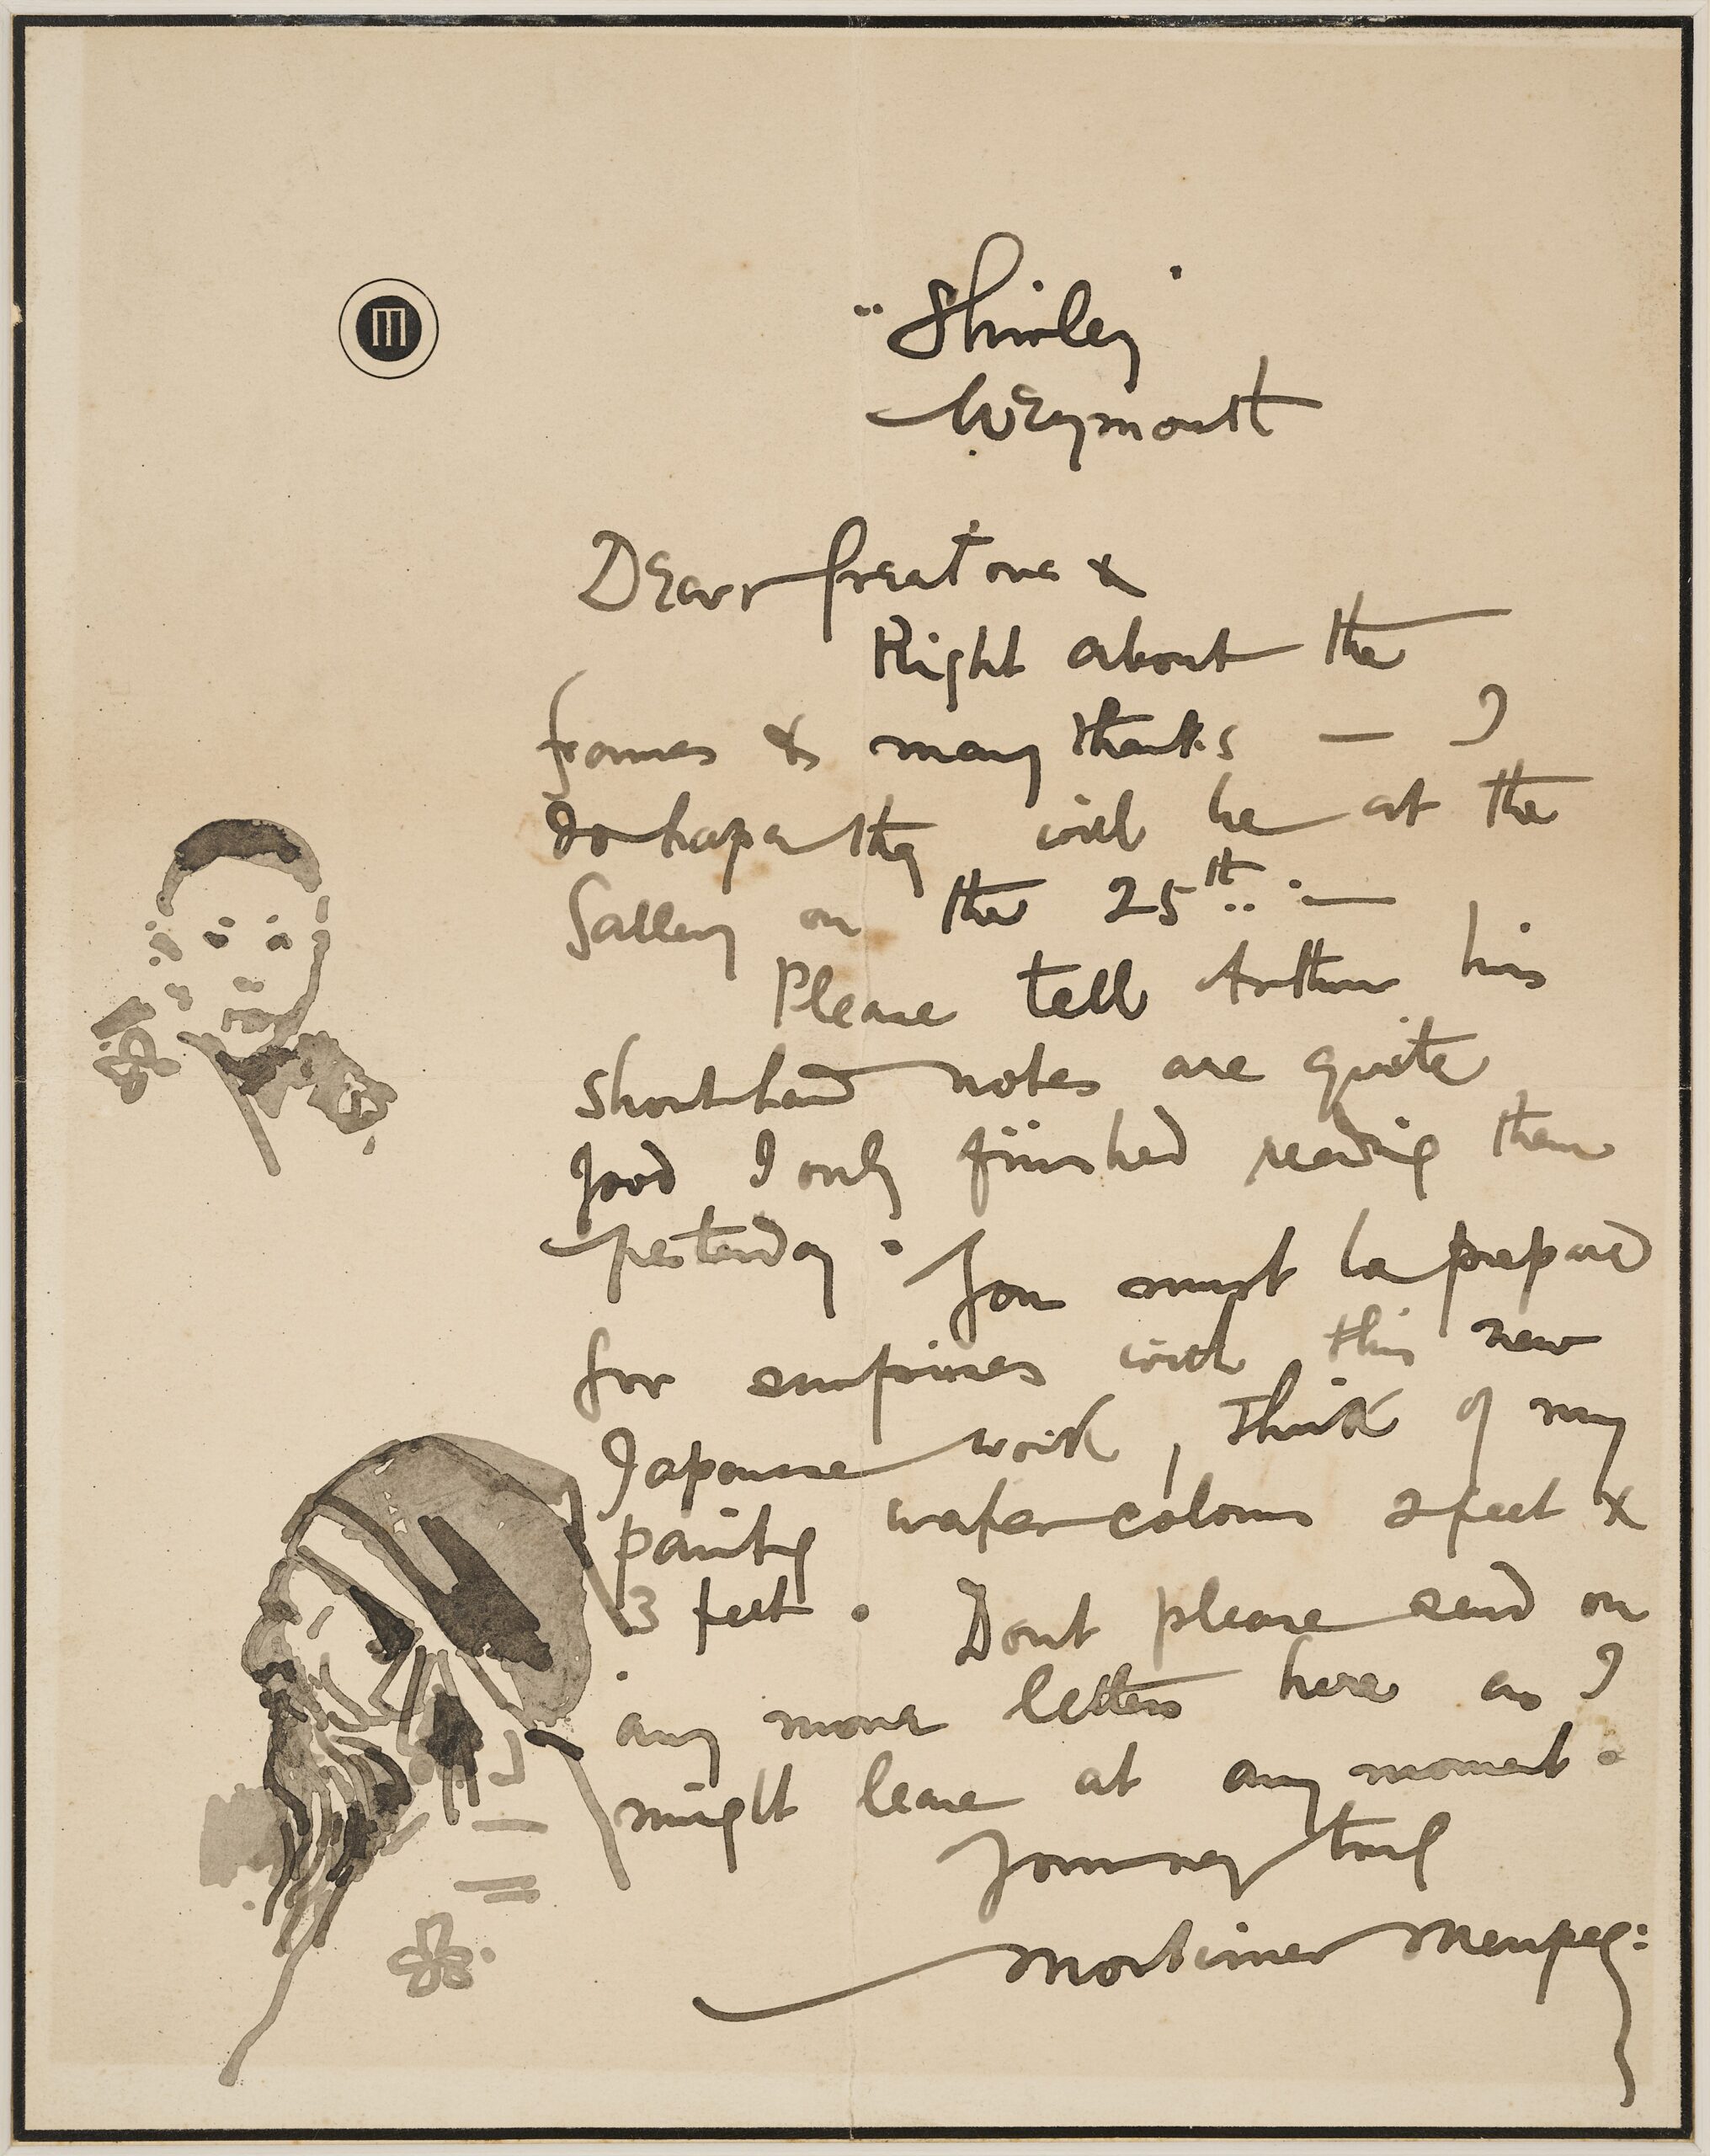 "Shirley"
Weymouth
Dear Great one x
Right about the
frames & many thanks — I
do hope they will be at the
Gallery on the 25th: —
Please tell Arthur his
shorthand notes are quite
good I only finished reading them
yesterday. You must be prepared
for surprises with this new
Japanese work, think of my
painting water colours 2 feet x
3 feet. Dont please send on
any more letters here as I
might leave at any moment.
Yours very truly
Mortimer Menpes: